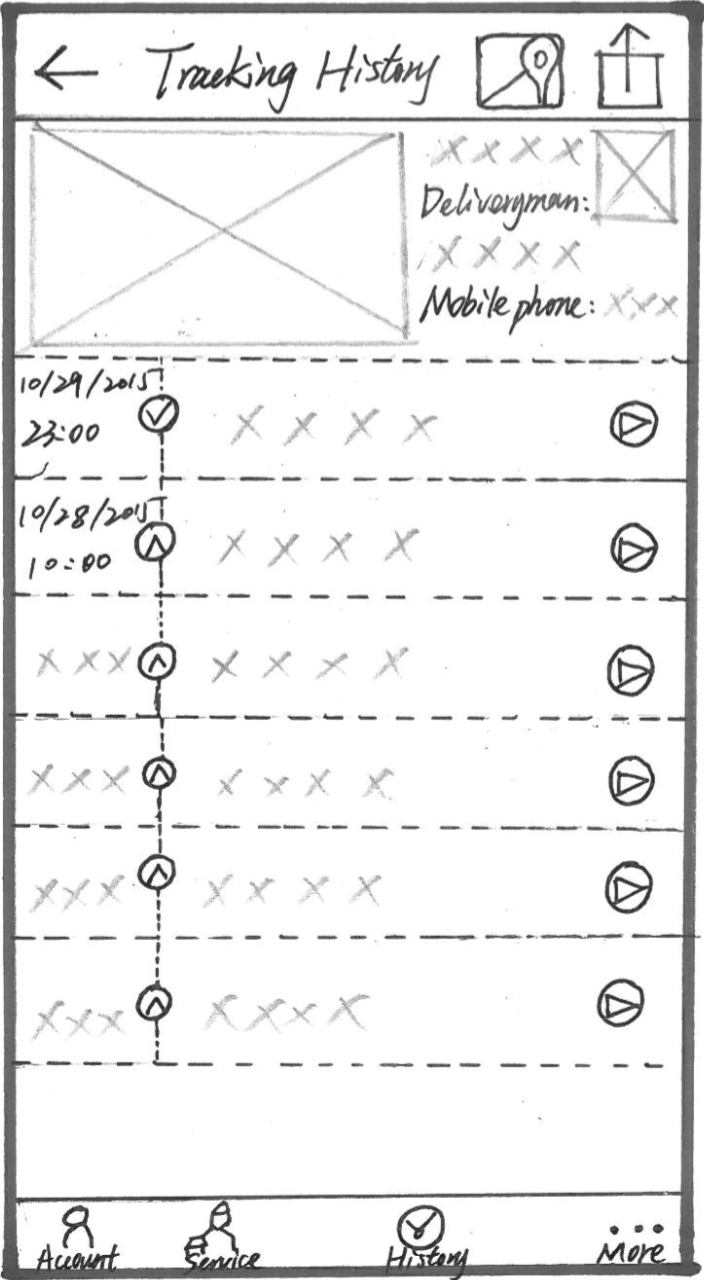 Tracking History
X X X X
Deliveryman:
X X X X
Mobile phone: XXX
10/29/2015
23:00
X X X X
10/28/2015
10:00
X X X X
X X X X X X X
X X X X X X X
X X X X X X X
X X X X X X X
Account Service History More